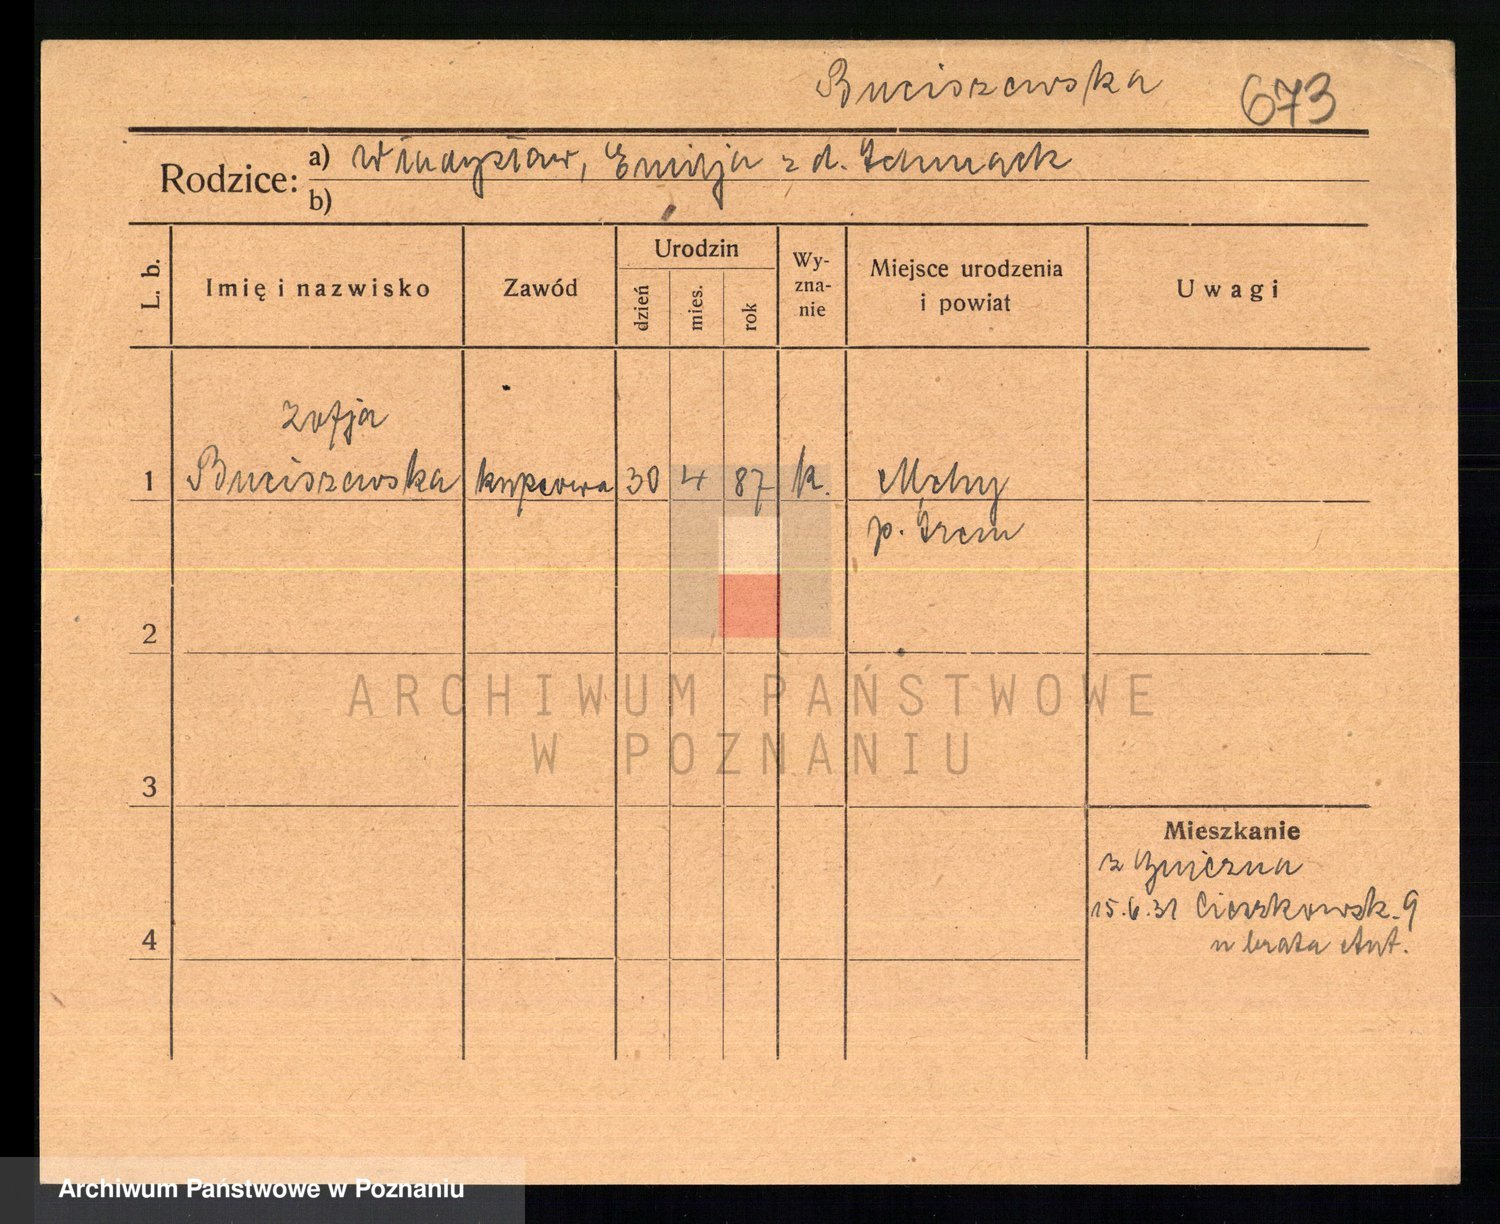 Buciszewska 673
Rodzice: a) Władysław, Emilja z d. Schmack
b)
L. b. Imię i nazwisko Zawód Urodzin dzień mies. rok Wy-zna-nie Miejsce urodzenia i powiat Uwagi
Zofja
1 Buciszewska kupcowa 30 4 87 k. Mchy
p. Śrem
2
ARCHIWUM PAŃSTWOWE
W POZNANIU
3
Mieszkanie
z
15.6.31 Cieszkowsk. 9
4
u brata Ant.
Archiwum Państwowe w Poznaniu